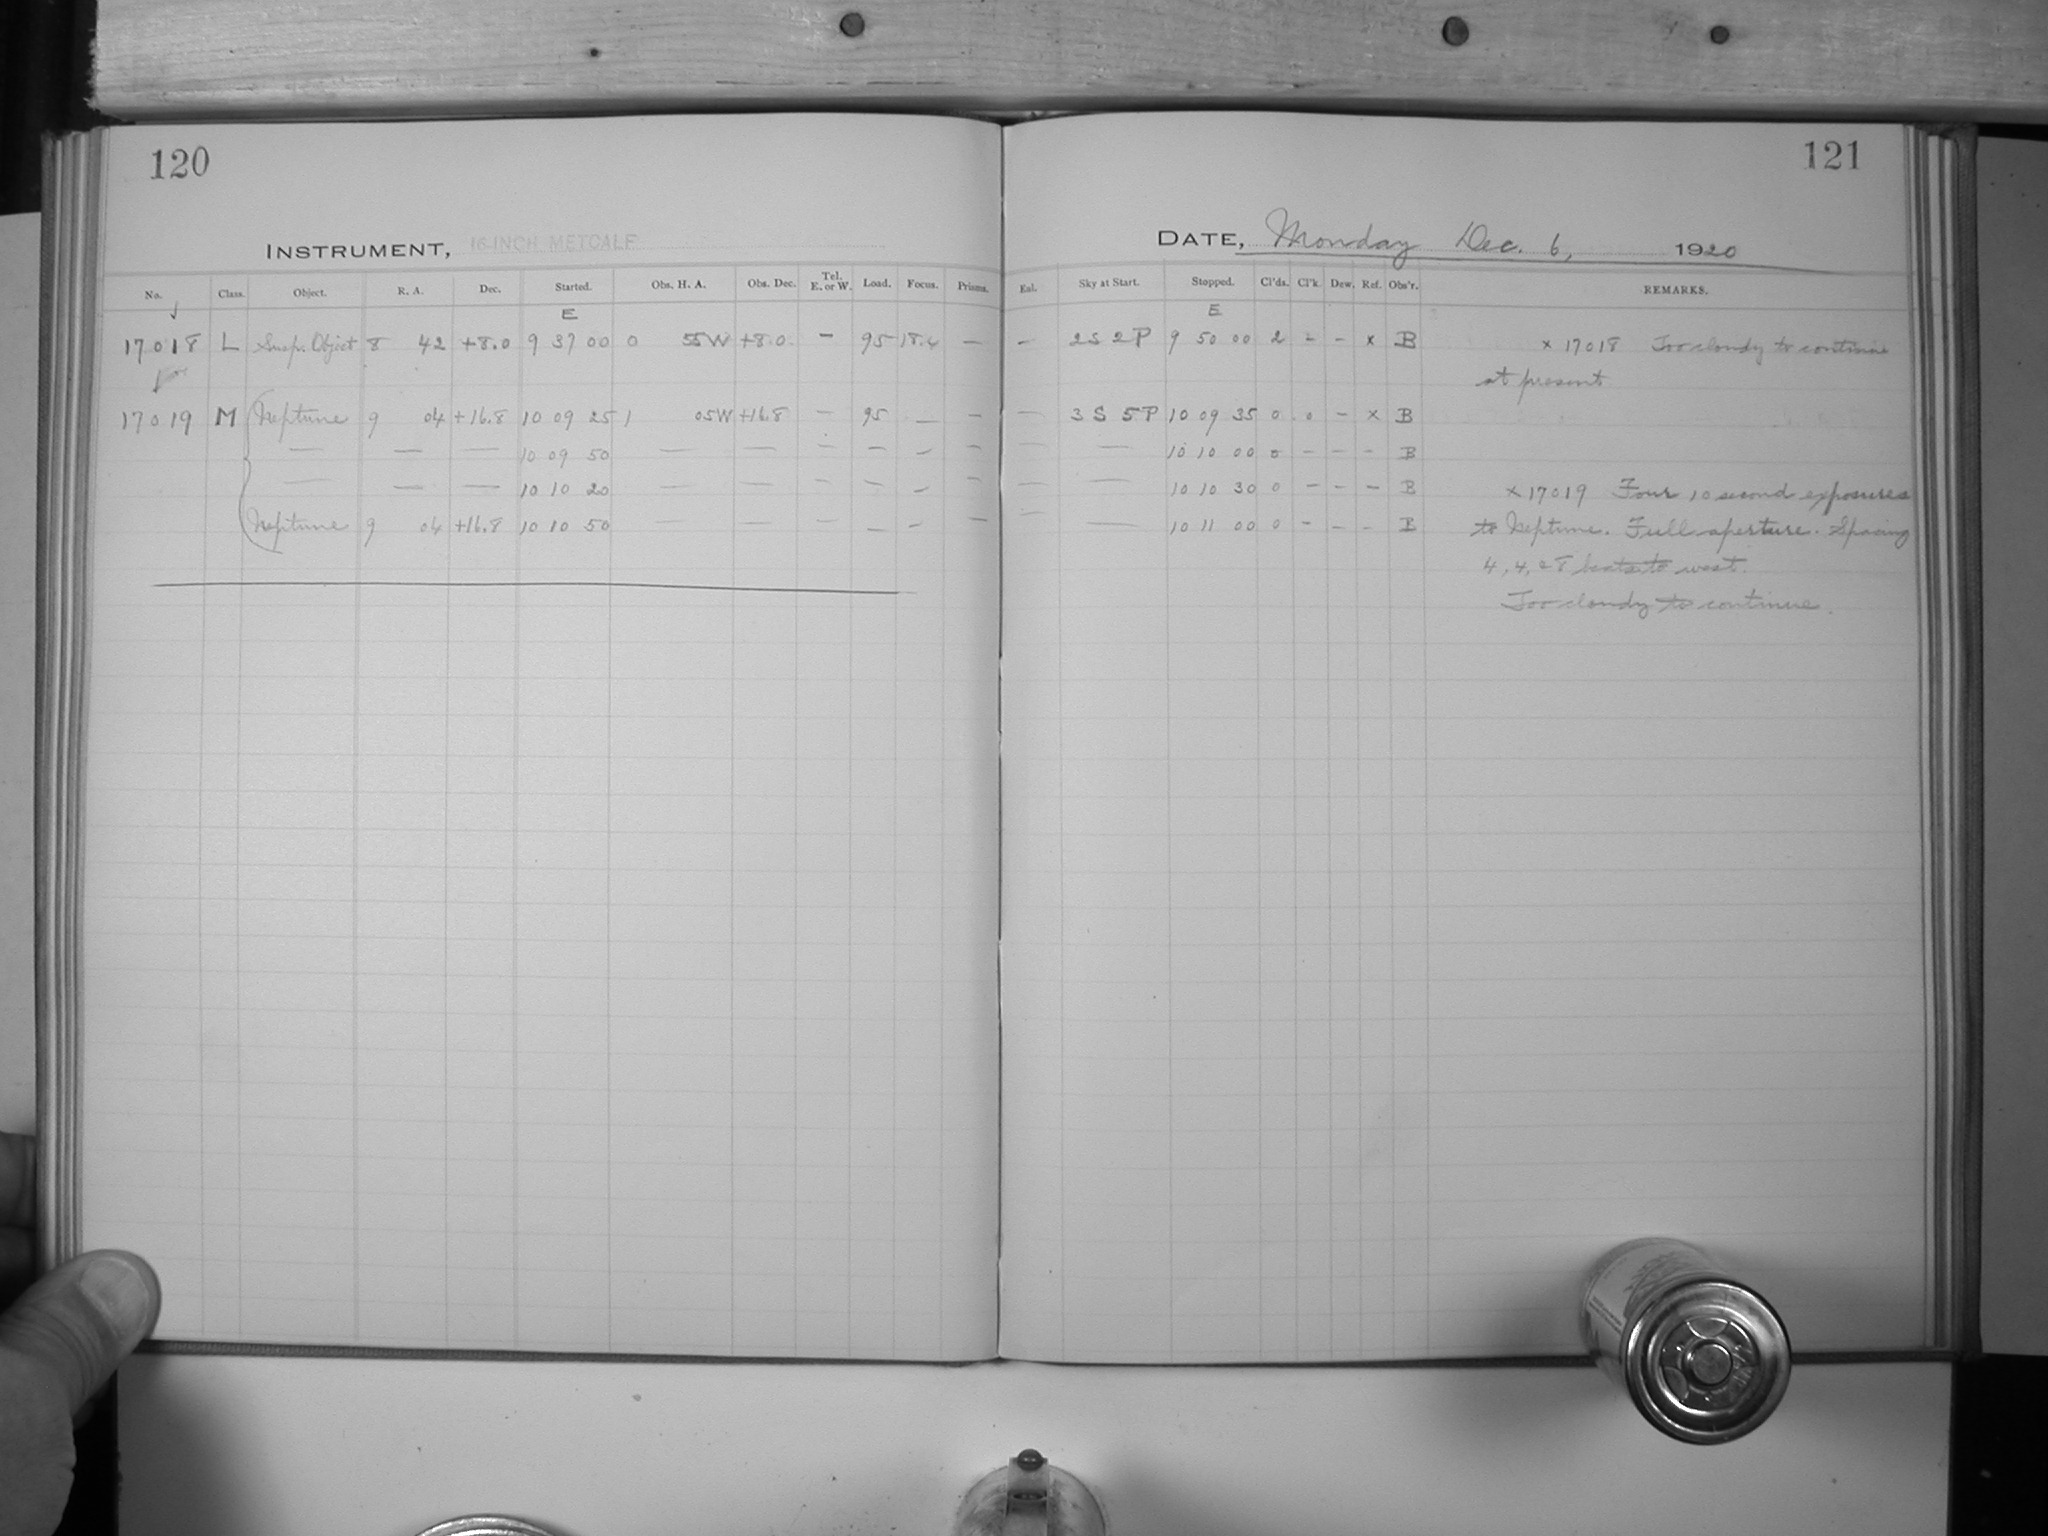 120
INSTRUMENT, 16-INCH METCALF
No. Class. Object. R. A. Dec. Started. Obs. H. A. Obs. Dec. Tel. E. or W. Load. Focus. Prisms.
E
17018 L Susp. Object 8 42 +8.0 9 37 00 0 55W +8.0 — 95 18.4 —
17019 M Neptune 9 04 +16.8 10 09 25 1 05W +16.8 — 95 — —
— — — 10 09 50 — — — — — —
— — — 10 10 20 — — — — — —
Neptune 9 04 +16.8 10 10 50 — — — — — —
121
DATE, Monday Dec. 6, 1920
Enl. Sky at Start. Stopped. Cl'ds. Cl'k. Dew. Ref. Obs'r. REMARKS.
E
— 2S 2P 9 50 00 2 - - x B x 17018 Too cloudy to continue
at present
— 3S 5P 10 09 35 0 0 - x B
— — 10 10 00 0 - - - B
— — 10 10 30 0 - - - B x 17019 Four 10 second exposures
— — 10 11 00 0 - - - B to Neptune. Full aperture. Spacing
4, 4, 8 to west.
Too cloudy to continue.